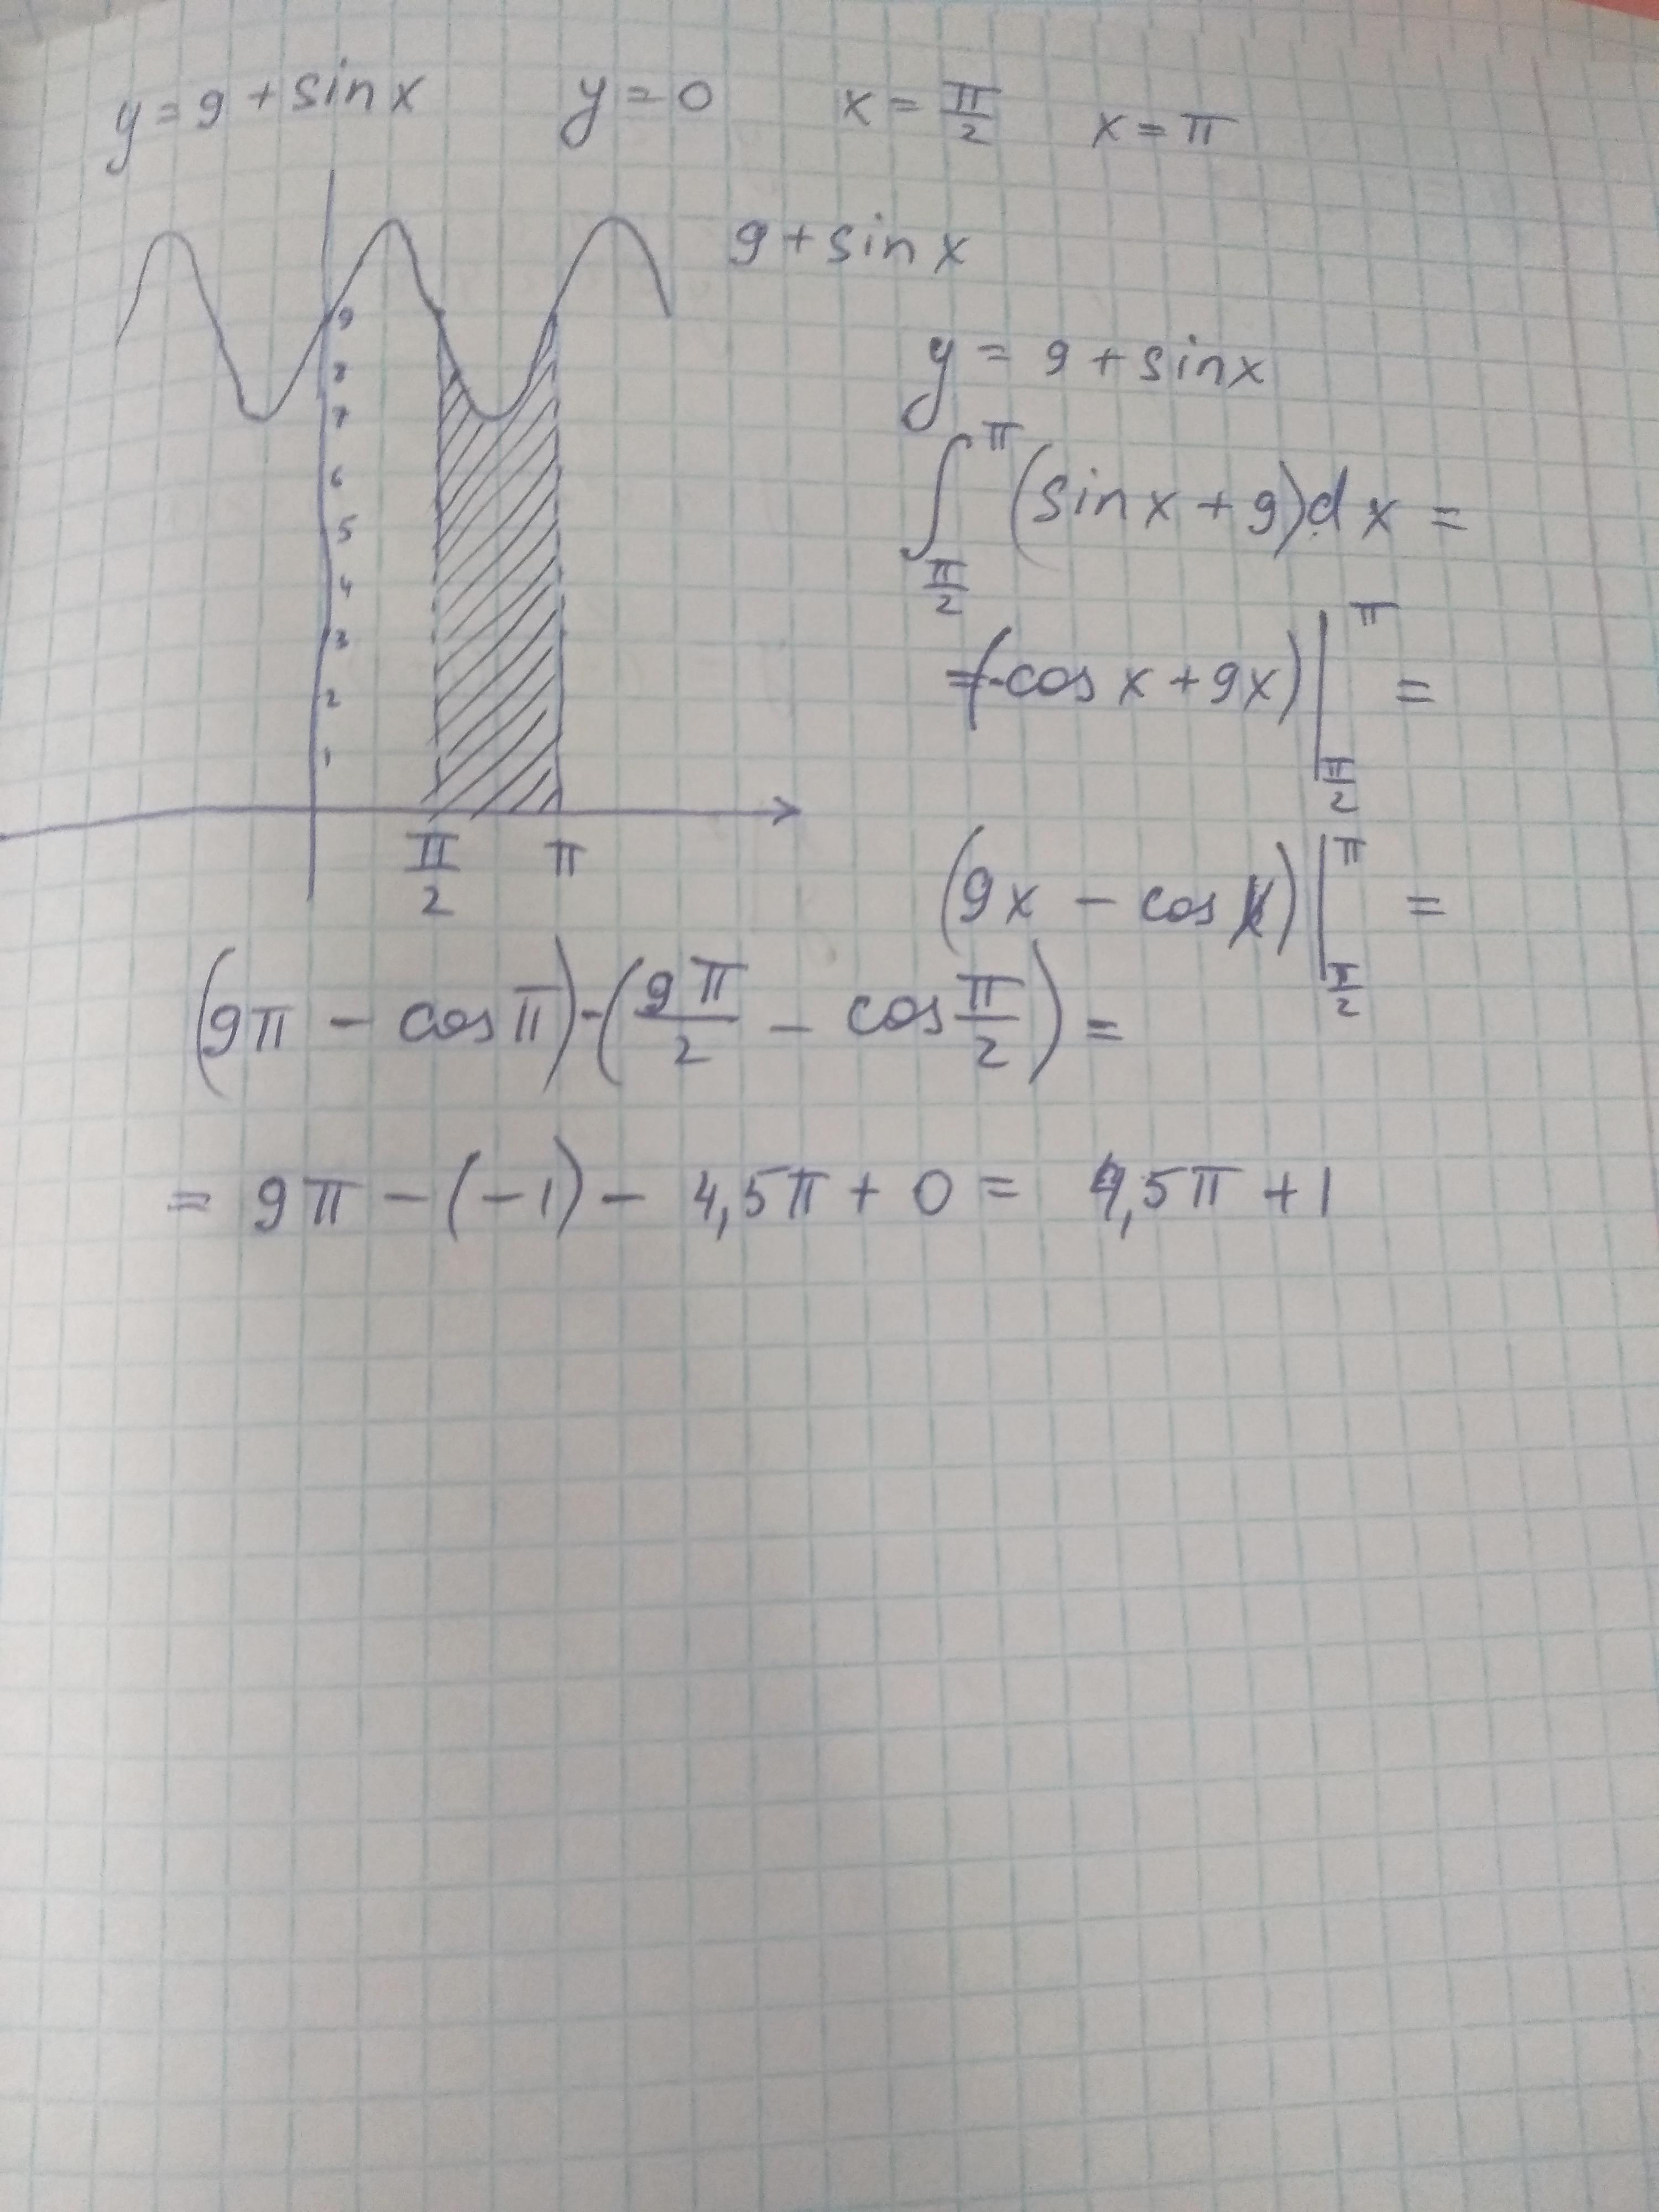 y = 9 + sin x y = 0 x = π/2 x = π
9 + sin x
9
8
7
6
5
4
3
2
1
π/2 π
y = 9 + sin x
∫_{π/2}^{π} (sin x + 9) dx =
= (-cos x + 9x) |_{π/2}^{π} =
(9x - cos x) |_{π/2}^{π} =
(9π - cos π) - (9π/2 - cos π/2) =
= 9π - (-1) - 4,5π + 0 = 4,5π + 1